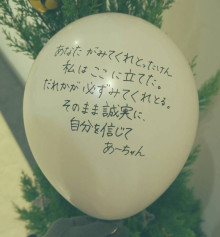 あなたがみてくれとったけん
私はここに立てた。
だれかが必ずみてくれとる。
そのまま誠実に、
自分を信じて
あ〜ちゃん